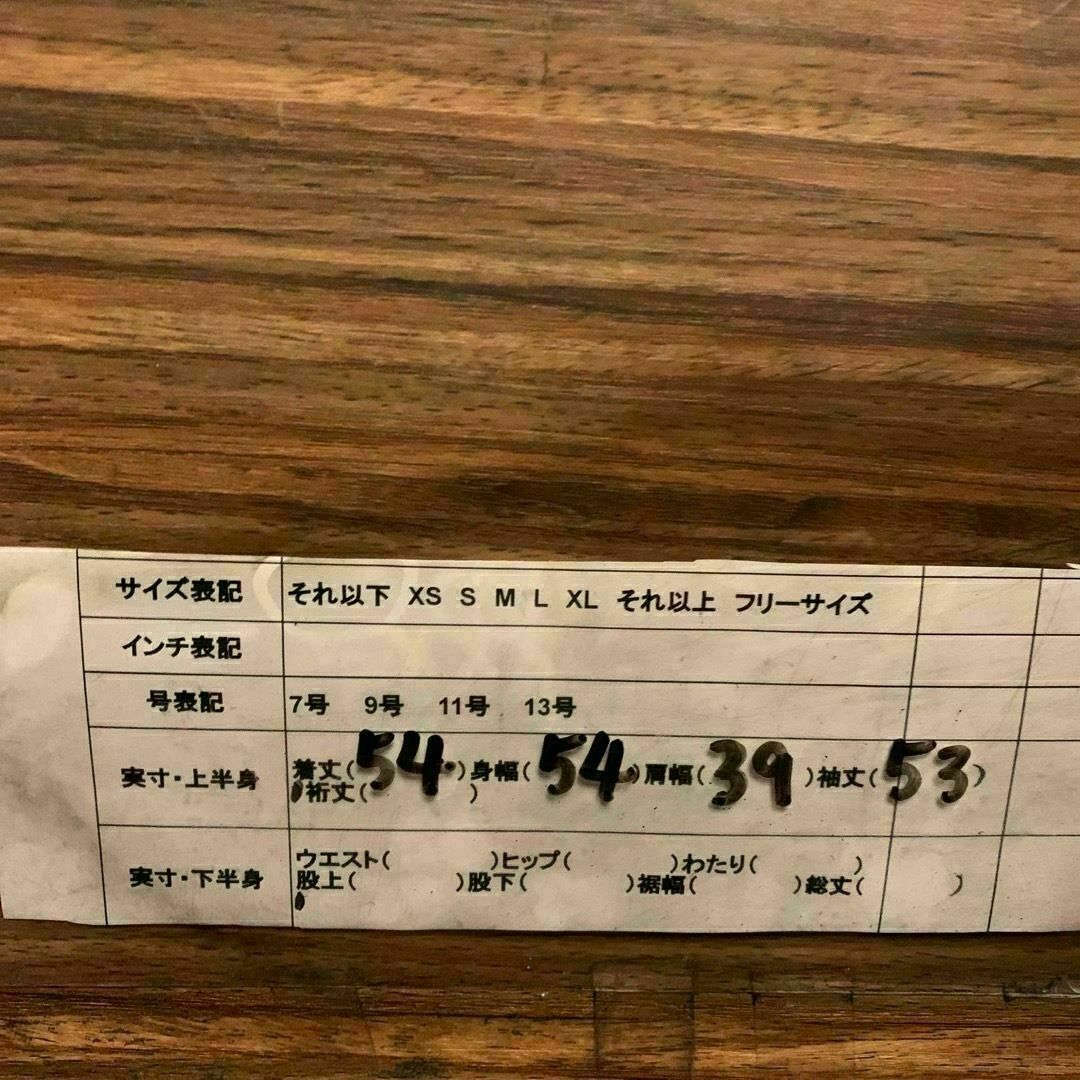 サイズ表記 それ以下 XS S M L XL それ以上 フリーサイズ
インチ表記
号表記 7号 9号 11号 13号
実寸・上半身 着丈(54)身幅(54)肩幅(39)袖丈(53)
裄丈( )
実寸・下半身 ウエスト( )ヒップ( )わたり( )
股上( )股下( )裾幅( )総丈( )